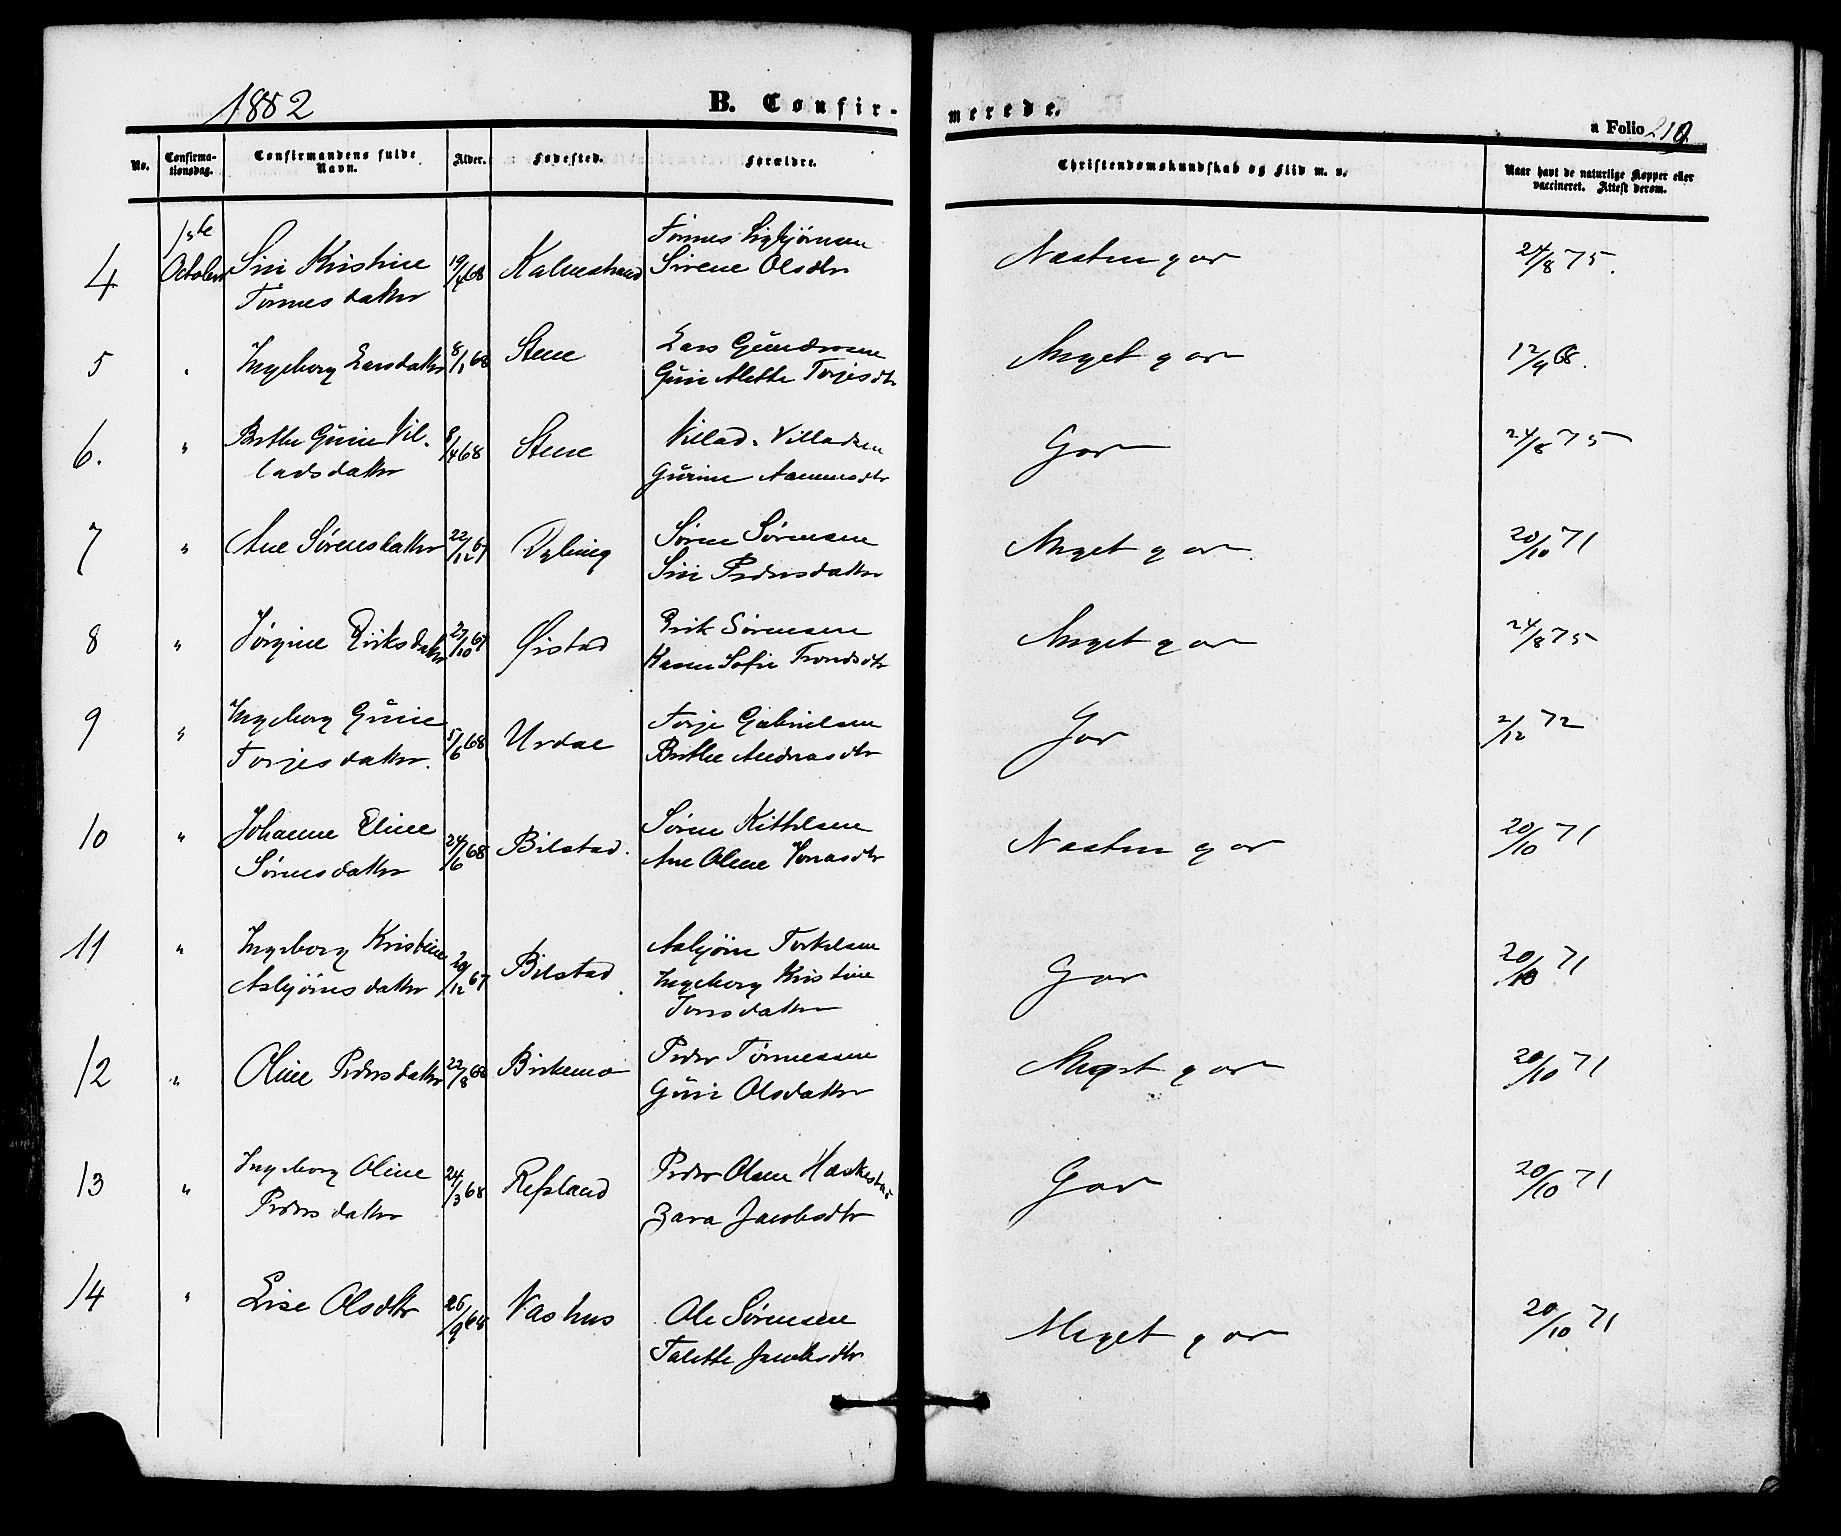 1882
B. Confir-
merede.
a Folio 210
No.
Confirma-
tionsdag.
Confirmandens fulde
Navn.
Alder.
Fødested.
Forældre.
Christendomskundskab og Flid m. v.
Naar havt de naturlige Kopper eller
vaccineret. Attest derom.
1ste
4 October Siri Kristine 19/4 68 Kalvestrand Tønnes Sigbjørnsen
Tønnesdatter Sirene Olsdtr
Næsten god 24/8 75.
5 " Ingeborg Larsdatter 8/1 68 Stene Lars Gundersen
Guri Alette Torjesdtr
Meget god 12/9 68.
6. " Berthe Gurine Vil- 8/4 68 Stene Villad Villadsen
ladsdatter Gurine Aanensdtr
God 24/8 75
7 " Ane Sørensdatter 22/12 67 Dybing Søren Sørensen
Siri Pedersdatter
Meget god. 20/10 71
8 " Jørgine Eriksdatter 27/10 67 Ørstad Erik Sørensen
Karen Sofie Trondsdtr
Meget god 24/8 75
9 " Ingeborg Gurie 5/6 68 Urdal Torje Gabrielsen
Torjesdatter. Berthe Andreasdtr
God 2/12 72
10 " Johanne Eline 24/6 68 Bilstad. Søren Kittelsen
Sørensdatter Ane Olene Jonasdtr
Næsten god 20/10 71
11 " Ingeborg Kristine 29/12 67 Bilstad Asbjørn Torkelsen
Asbjørnsdatter Ingeborg Kristine
Jonsdatter
God 20/10 71
12 " Oline Pedersdatter 22/8 68 Birkemo Peder Tønnessen
Guri Olsdatter
Meget god 20/10 71
13 " Ingeborg Oline 24/3 68 Refsland Peder Olsen Haskestad
Pedersdatter Zara Jacobsdtr
God 20/10 71
14 " Lise Olsdtr 26/9 68 Vashus Ole Sørensen
Talette Jacobsdtr
Meget god 20/10 71